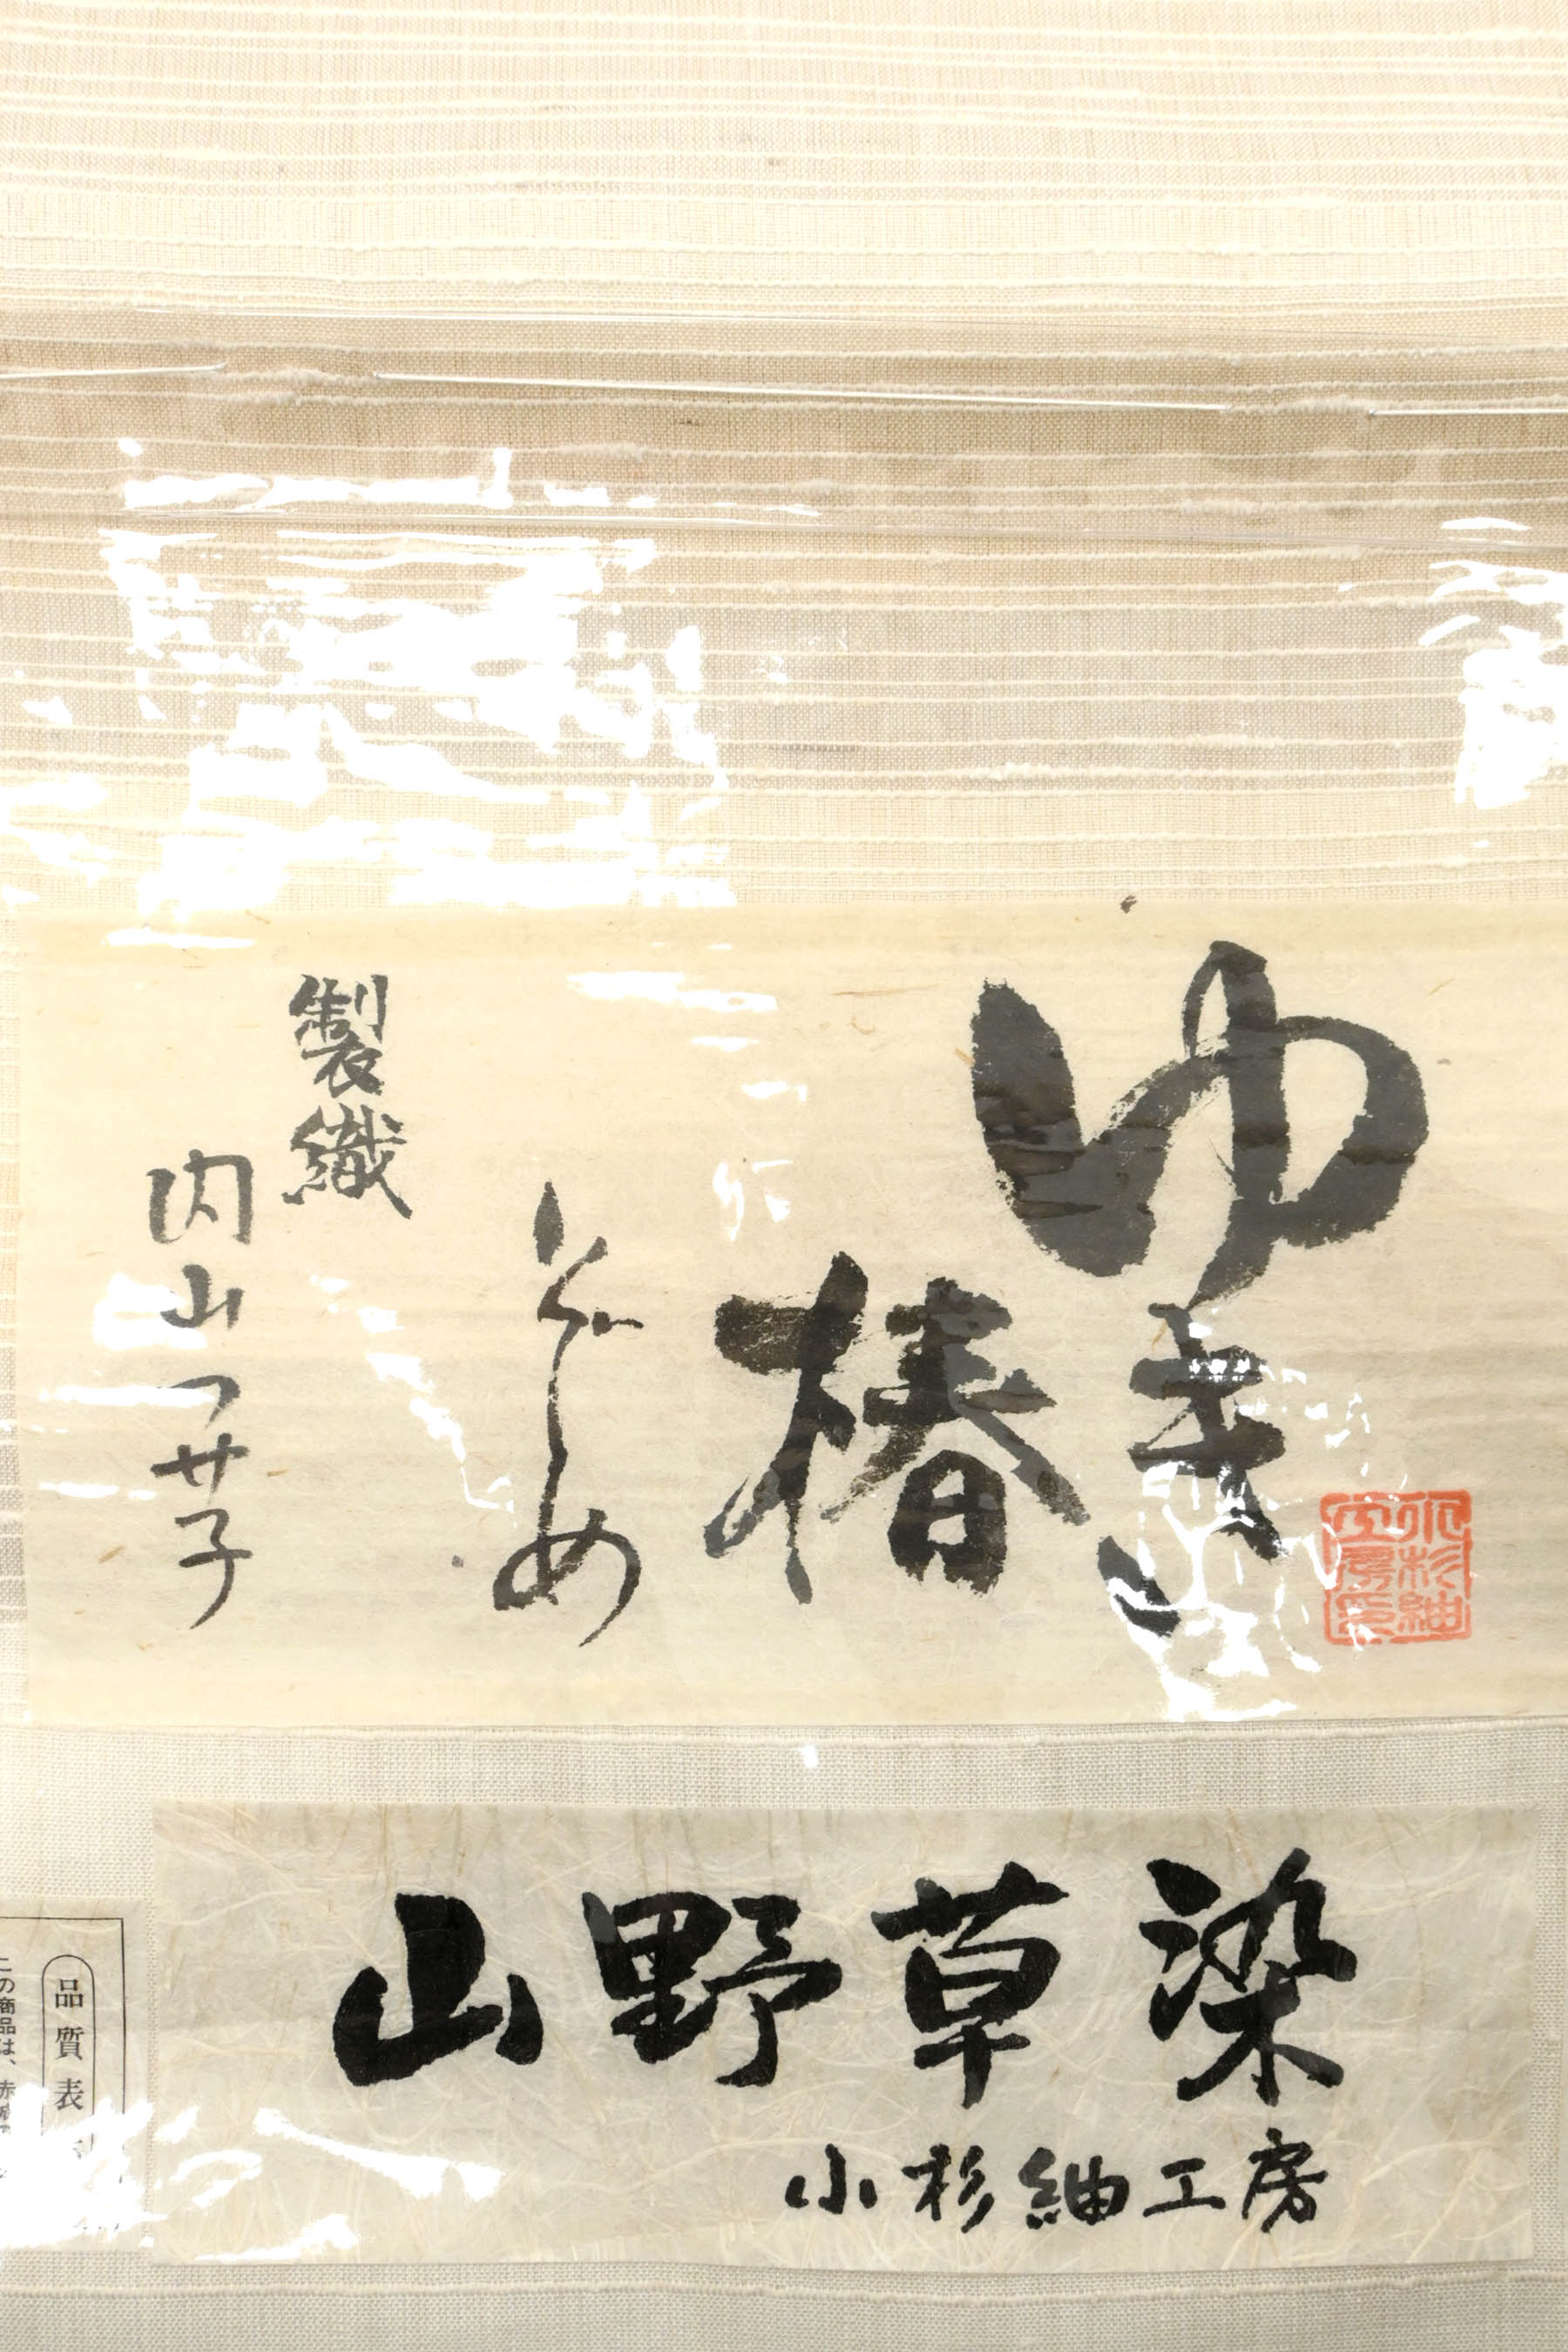 ゆき
椿
ぞめ
製織
内山フサ子
小杉紬
工房印
山野草染
小杉紬工房
品質表
この商品は、赤